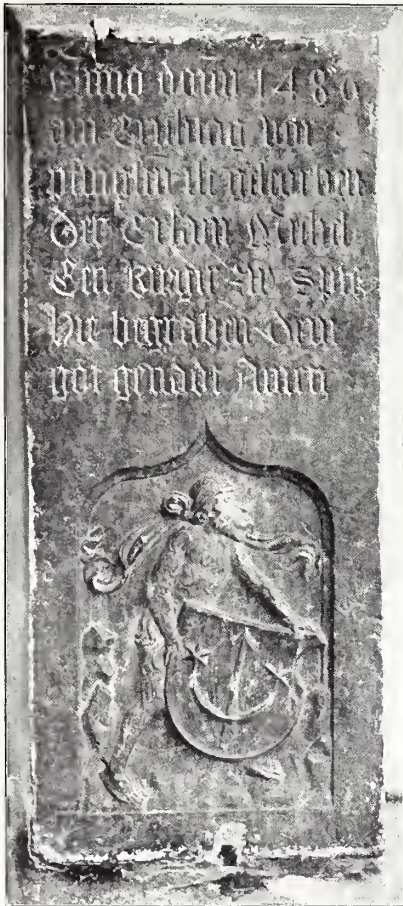 Anno domi 1486
am Erichtag vor
pfingsten ist gestorben
Der Erſam Michel
Een Burger zw Spitz
hie begraben dem
got genadt Amen